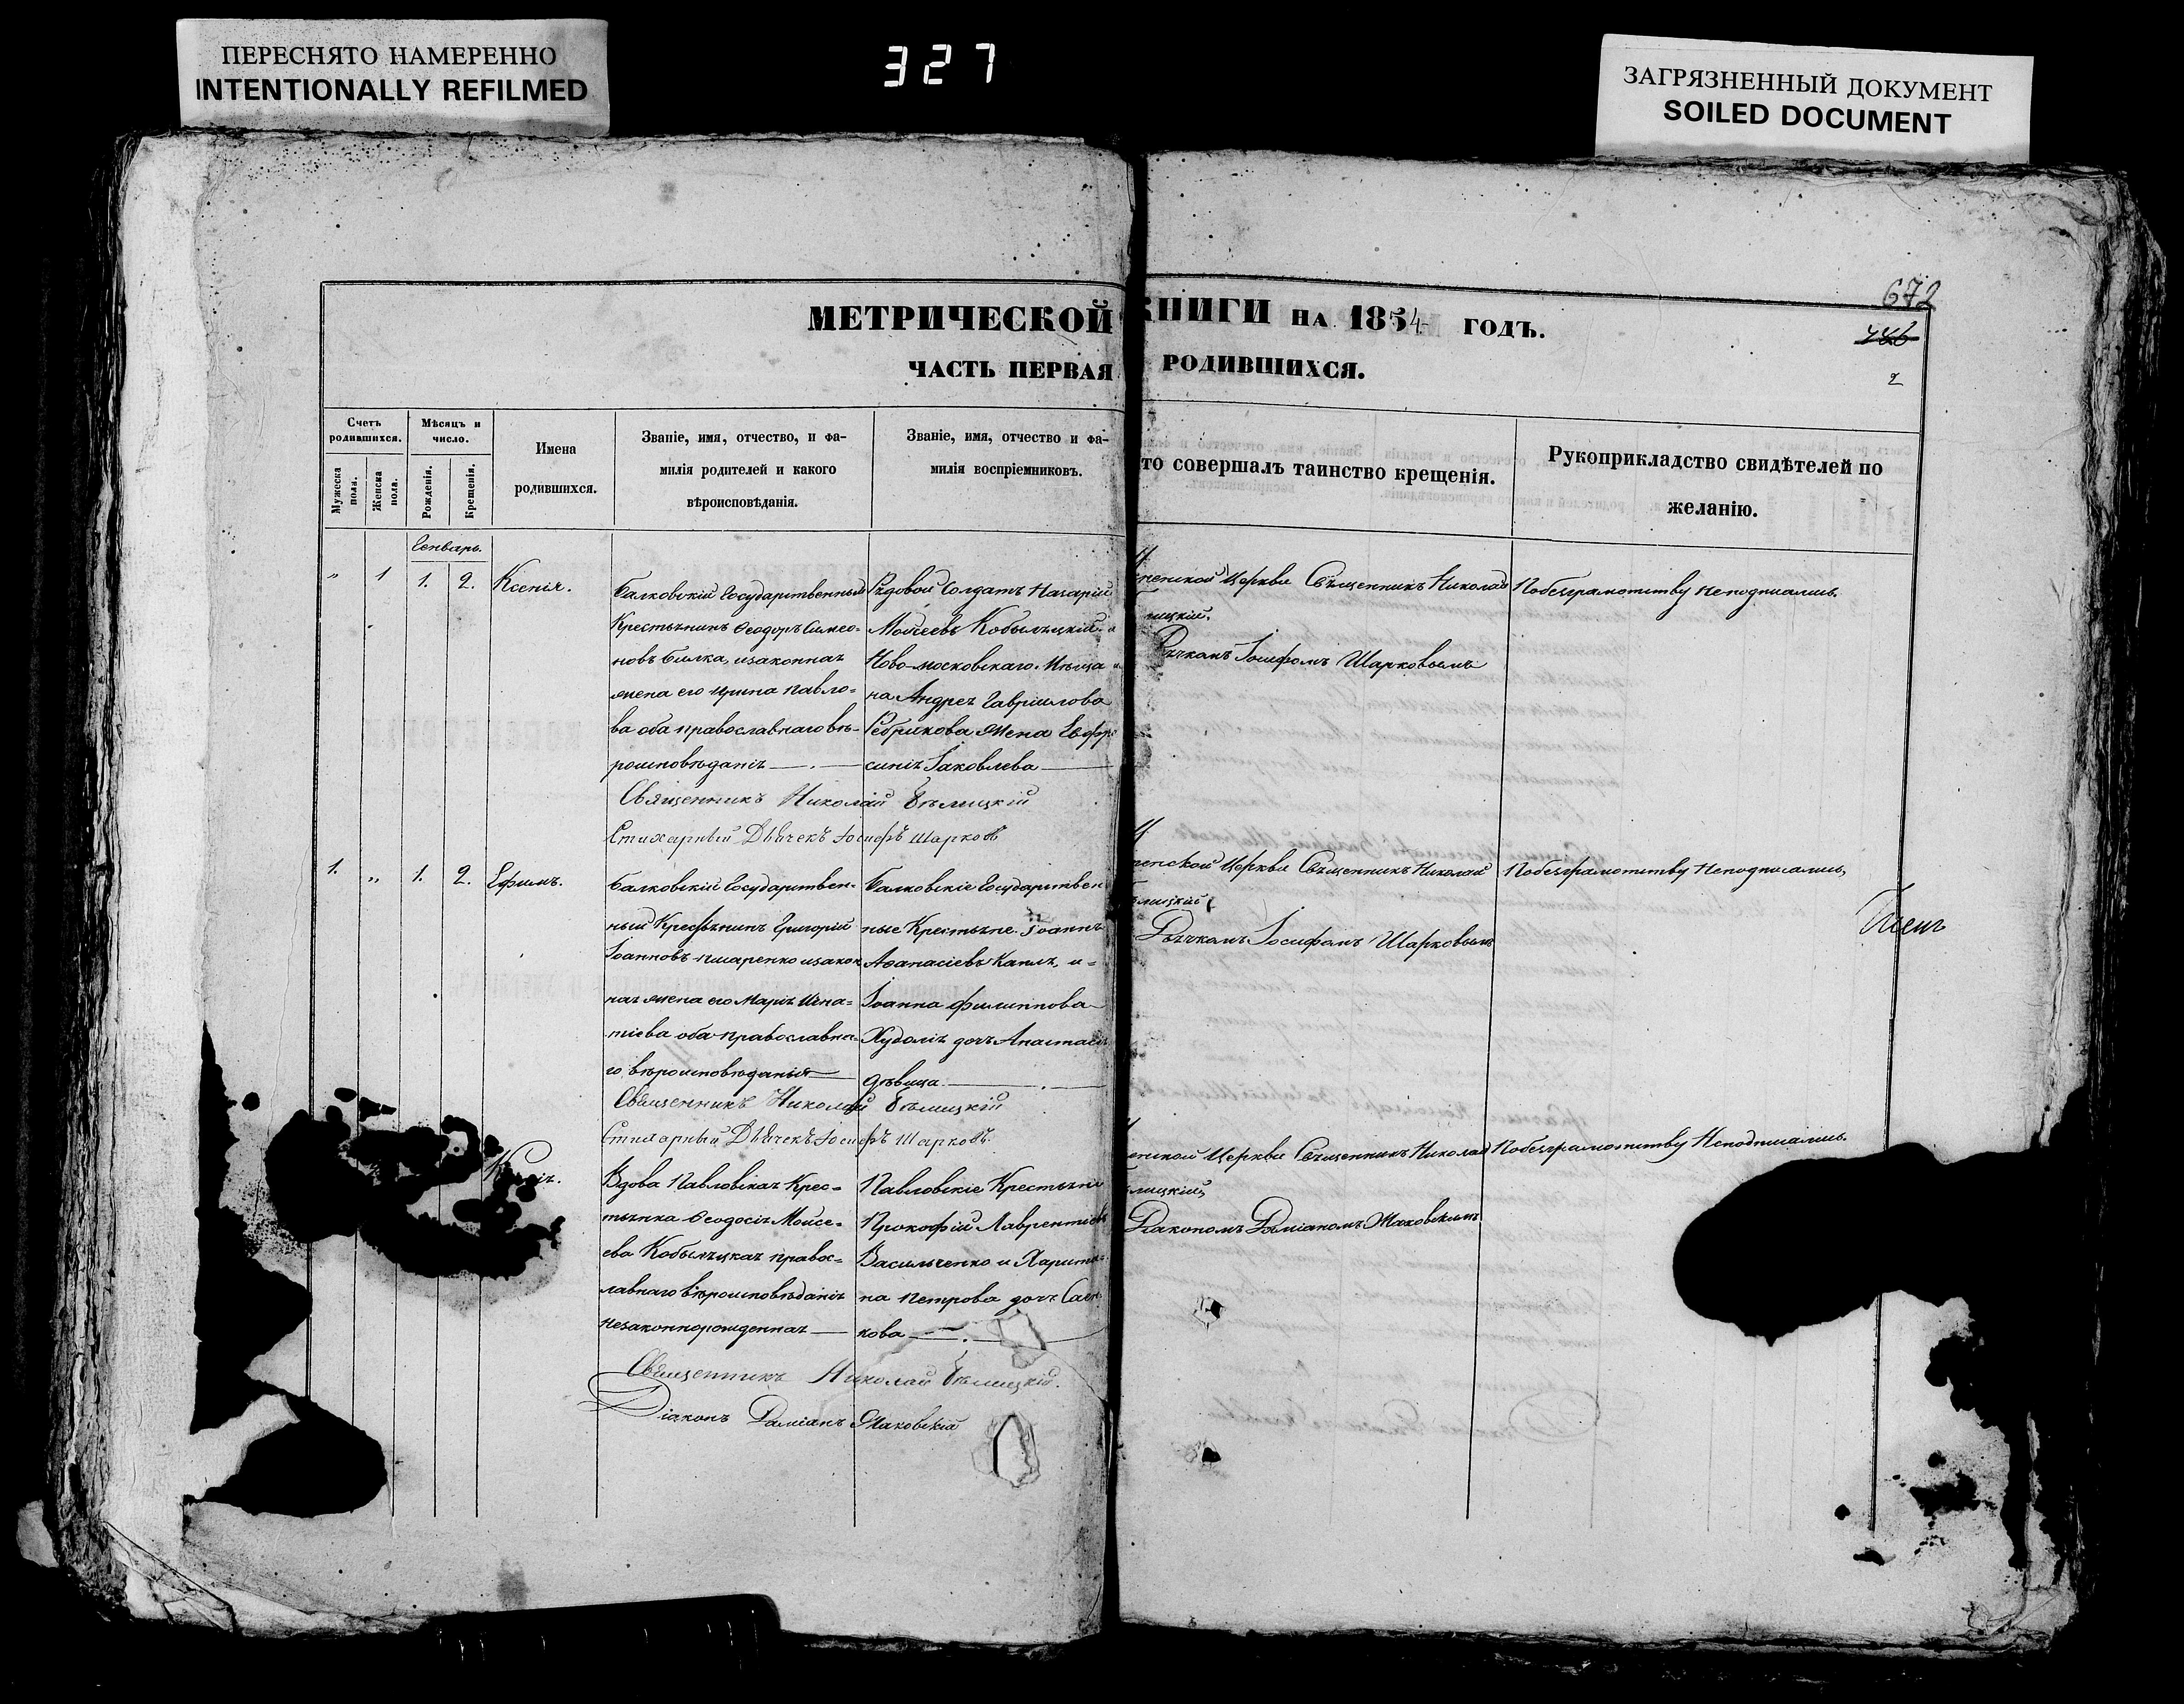 ПЕРЕСНЯТО НАМЕРЕННО
INTENTIONALLY REFILMED
327
ЗАГРЯЗНЕННЫЙ ДОКУМЕНТ
SOILED DOCUMENT
672
2
МЕТРИЧЕСКОЙ КНИГИ НА 1854 ГОДЪ.
ЧАСТЬ ПЕРВАЯ РОДИВШИХСЯ.
Счетъ родившихся.
Мужеска пола.
Женска пола.
Мѣсяцъ и число.
Рожденія.
Крещенія.
Имена
родившихся.
Званіе, имя, отчество, и фа-
милія родителей и какого
вѣроисповѣданія.
Званіе, имя, отчество и фа-
милія воспріемниковъ.
то совершалъ таинство крещенія.
Рукоприкладство свидѣтелей по
желанію.
Генварь.
„ 1 1. 2. Ксенія.
Балковскій Государственный
Крестьянинъ Ѳеодоръ Симео-
новъ Билка, изаконная
жена его Ирина Павло-
ва оба православнаго вѣ-
роисповѣданія
Рядовой Солдатъ Назарій
Моисеевъ Кобыляцкій и
Ново-московскаго Мѣща
на Андрея Гавріилова
Ребрикова Жена Евфро
синія Іаковлева
Церкви Священникъ Николай
лицкій.
Дьячкомъ Іосифомъ Шарковымъ
Побезграмотству Неподписались.
Священникъ Николай Бѣлицкій
Стихарный Дьячекъ Іосифъ Шарковъ
1. „ 1. 2. Ефимъ.
Балковскій Государствен-
ный Крестьянинъ Григорій
Іоанновъ Писаренко изакон
ная жена его Марія Игна-
тіева оба православна-
го вѣроисповѣданія
Балковскіе Государствен
ные Крестьяне Іоаннъ
Аѳанасіевъ Капля, и
Іоанна Филиппова
Худолія дочь Анастасія
дѣвица
Церкви Священникъ Николай
лицкій
Дьячкомъ Іосифомъ Шарковымъ
Побезграмотству Неподписались,
Священникъ Николай Бѣлицкій
Стихарный Дьячекъ Іосифъ Шарковъ
Вдова Павловская Крес-
тьянка Ѳеодосія Мойсе-
ева Кобыляцкая правос-
лавнаго вѣроисповѣданія
незаконнорожденная
Павловскіе Крестьяне
Прокофій Лаврентіевъ
Васильченко и Харити-
на Петрова дочь
кова
Церкви Священникъ Николай
лицкій,
Діакономъ Даміаномъ Маковскимъ
Побезграмотству Неподписались.
Священникъ Николай Бѣлицкій.
Діаконъ Даміанъ Маковскій